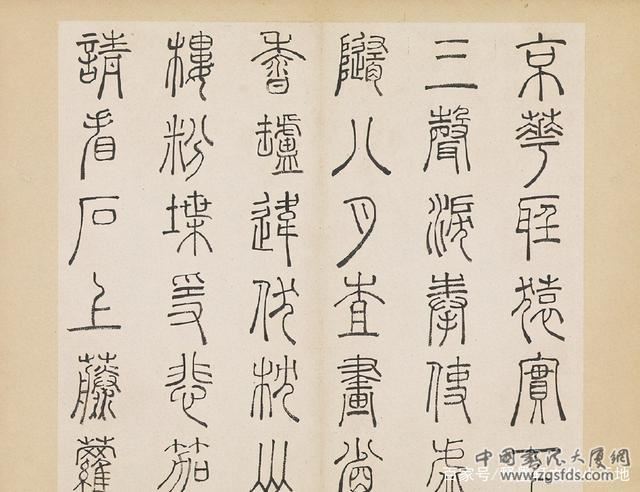 京華聽猿實下
三聲淚奉使虛
隨八月查畫省
香爐違伏枕山
樓粉堞隱悲笳
請看石上藤蘿
百家号/
中國書法大厦網
www.zgsfds.com